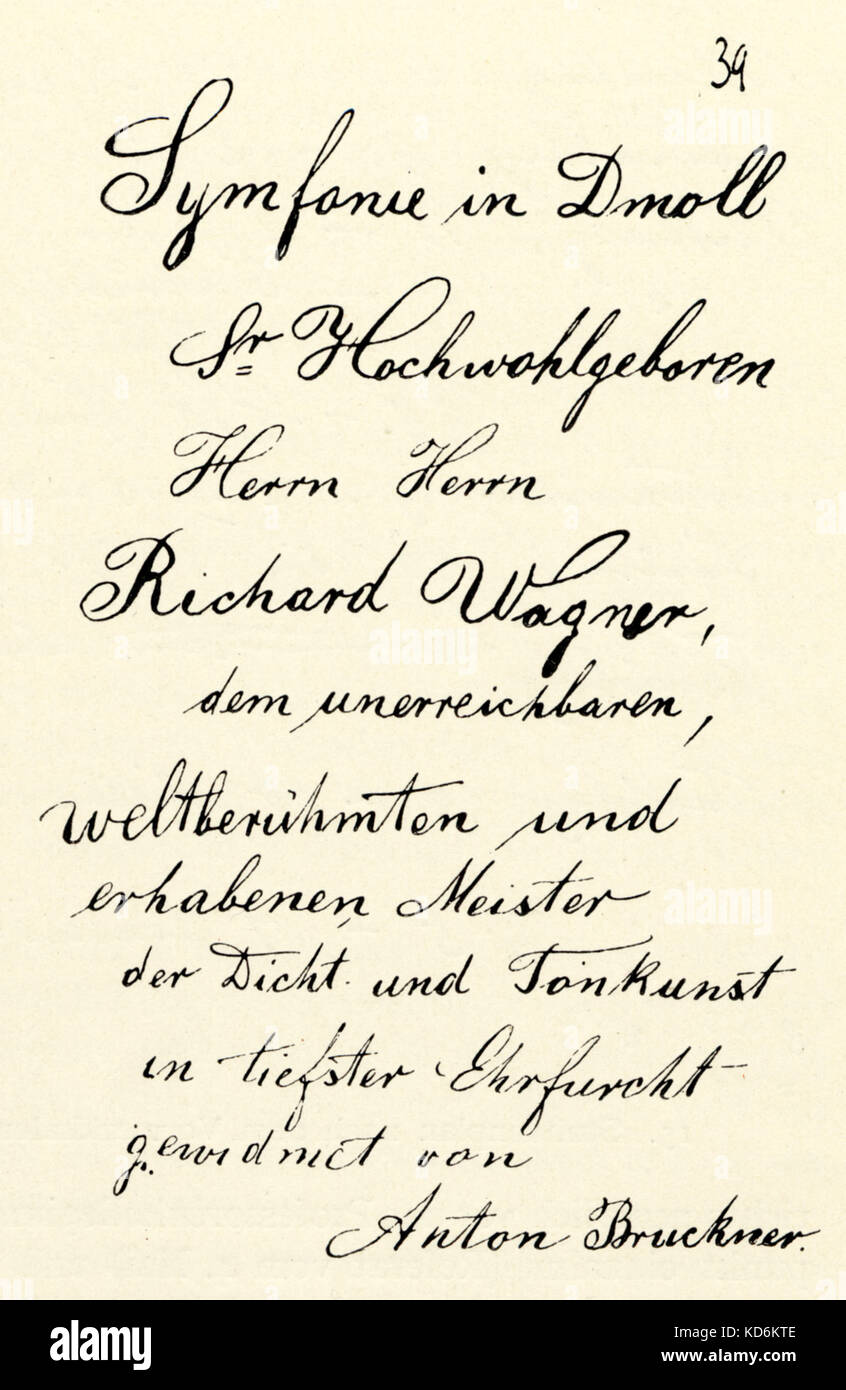 39
Symfonie in Dmoll
Sr Hochwohlgeboren
Herrn Herrn
Richard Wagner,
dem unerreichbaren,
weltberühmten und
erhabenen Meister
der Dicht- und Tonkunst
in tiefster Ehrfurcht
gewidmet von
Anton Bruckner.
alamy
Image ID: KD6KTE
www.alamy.com